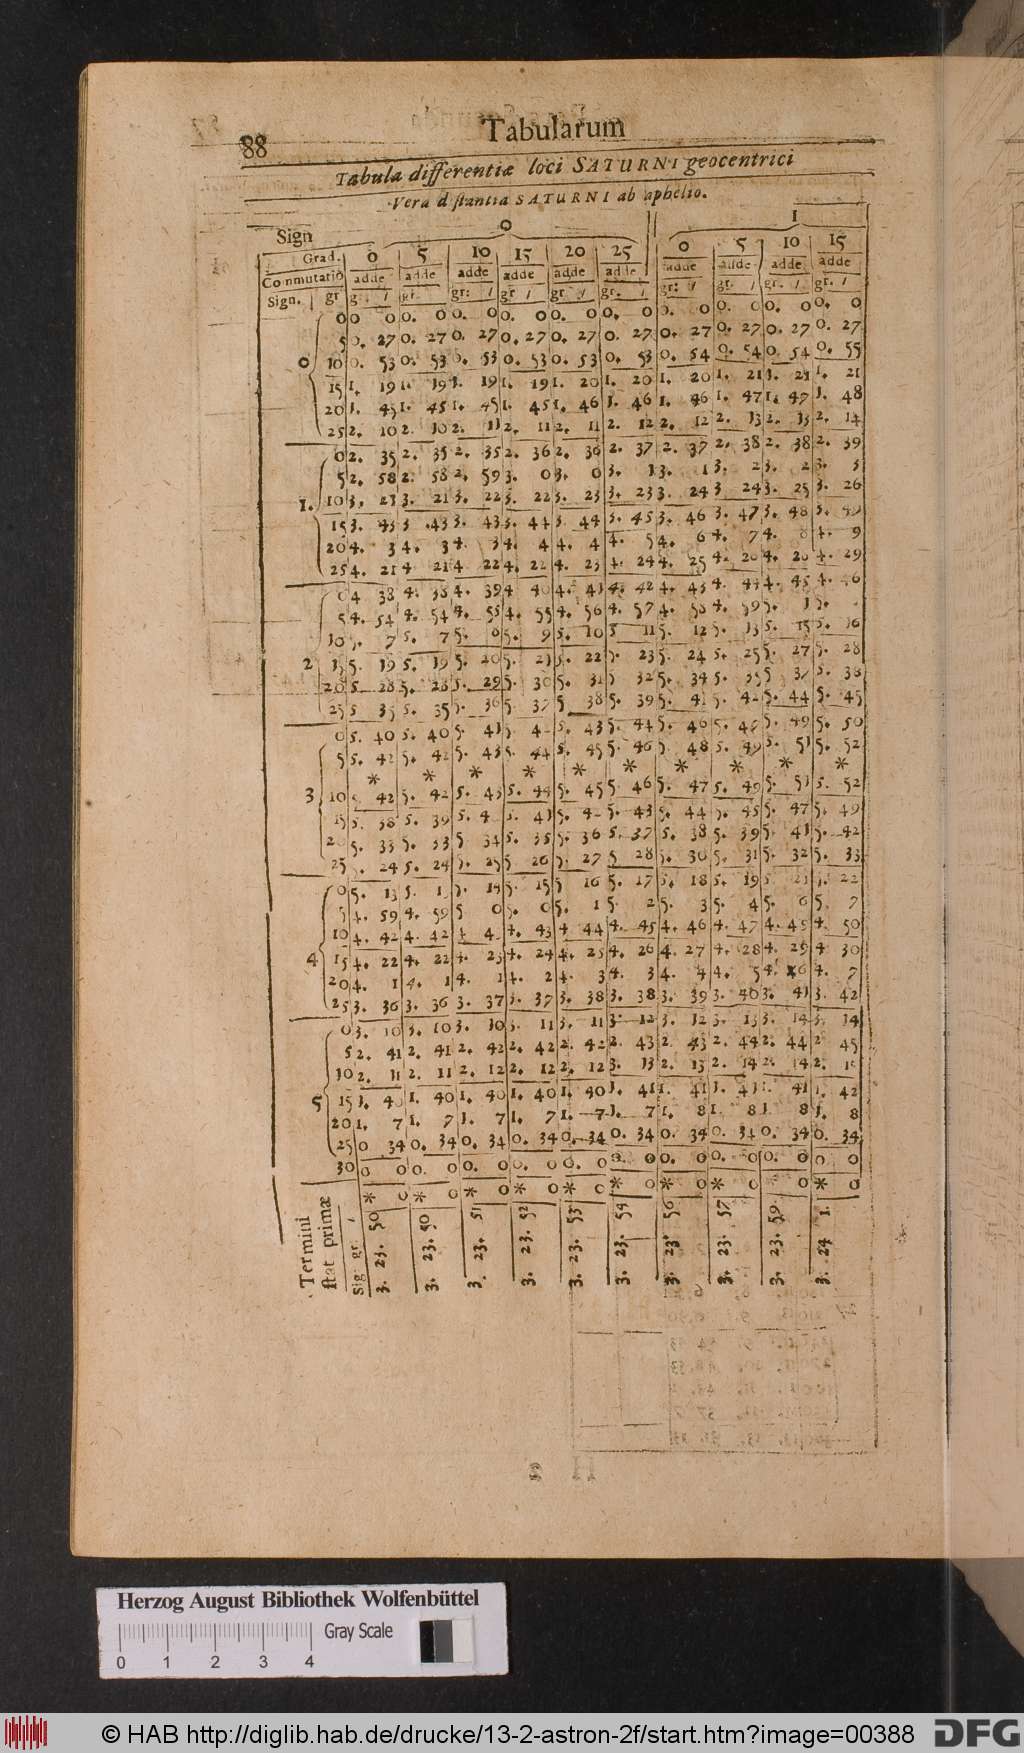 88
Tabularum
Tabula differentiæ loci SATURNI geocentrici
Vera d stantia SATURNI ab aphelio.
0 1
Sign
Grad. 0 5 10 15 20 25 0 5 10 15
Commutatiō adde adde adde adde adde adde adde adde adde adde
Sign. gr
0 0 0 0. 0 0. 0 0. 0 0. 0 0. 0 0. 0 0. 0 0. 0 0. 0
5 0. 27 0. 27 0. 27 0. 27 0. 27 0. 27 0. 27 0. 27 0. 27 0. 27
0 10 0. 53 0. 53 0. 53 0. 53 0. 53 0. 53 0. 54 0. 54 0. 54 0. 55
15 1. 19 1. 19 1. 19 1. 19 1. 20 1. 20 1. 20 1. 21 1. 21 1. 21
20 1. 45 1. 45 1. 45 1. 45 1. 46 1. 46 1. 46 1. 47 1. 47 1. 48
25 2. 10 2. 10 2. 11 2. 11 2. 11 2. 12 2. 12 2. 13 2. 13 2. 14
0 2. 35 2. 35 2. 35 2. 36 2. 36 2. 37 2. 37 2. 38 2. 38 2. 39
5 2. 58 2. 58 2. 59 3. 0 3. 0 3. 1 3. 1 3. 2 3. 2 3. 3
1. 10 3. 21 3. 21 3. 22 3. 22 3. 23 3. 23 3. 24 3 24 3. 25 3. 26
15 3. 43 3 43 3. 43 3. 44 3. 44 3. 45 3. 46 3. 47 3. 48 3. 49
20 4. 3 4. 3 4. 3 4. 4 4. 4 4. 5 4. 6 4. 7 4. 8 4. 9
25 4. 21 4 21 4 22 4. 22 4. 23 4. 24 4. 25 4. 26 4. 28 4. 29
0 4 38 4. 38 4. 39 4 40 4. 41 4. 42 4. 43 4. 44 4. 45 4. 46
5 4. 54 4. 54 4. 55 4. 55 4. 56 4. 57 4. 58 4. 59 5. 1
10 5. 7 5. 7 5. 8 5. 9 5. 10 5 11 5. 12 5. 13 5. 15 5. 16
2 15 5. 19 5. 19 5. 20 5. 21 5. 22 5. 23 5. 24 5. 25 5. 27 5. 28
20 5. 28 5. 28 5. 29 5. 30 5. 31 5 32 5. 34 5. 35 5 37 5. 38
25 5 35 5. 35 5. 36 5. 37 5 38 5. 39 5. 41 5. 42 5. 44 5. 45
0 5. 40 5. 40 5. 41 5. 42 5. 43 5. 44 5. 46 5. 47 5. 49 5. 50
5 5. 42 5. 42 5. 43 5. 44 5. 45 5. 46 5. 48 5. 49 5. 51 5. 52
* * * * * * * * * *
3 10 5. 42 5. 42 5. 43 5. 44 5. 45 5. 46 5. 47 5. 49 5. 51 5. 52
15 5. 38 5. 39 5. 4 5. 41 5. 42 5. 43 5. 44 5. 45 5. 47 5. 49
20 5. 33 5. 33 5 34 5. 35 5. 36 5. 37 5. 38 5. 39 5. 41 5. 42
25 5. 24 5. 24 5. 25 5 26 5. 27 5 28 5. 30 5. 31 5. 32 5. 33
0 5. 13 5. 13 5. 14 5. 15 5 16 5. 17 5. 18 5. 19 5. 21 5. 22
5 4. 59 4. 59 5 0 5. 0 5. 1 5. 2 5. 3 5. 4 5. 6 5. 7
10 4. 42 4. 42 4 4 4. 43 4 44 4. 45 4. 46 4. 47 4. 49 4. 50
4 15 4. 22 4. 22 4. 23 4. 24 4. 25 4. 26 4. 27 4. 28 4. 29 4 30
20 4. 1 4. 1 4. 1 4. 2 4. 3 4. 3 4. 4 4. 5 4. 6 4. 7
25 3. 36 3. 36 3. 37 3. 37 3. 38 3. 38 3. 39 3. 40 3. 41 3. 42
0 3. 10 3. 10 3. 10 3. 11 3. 11 3. 12 3. 12 3. 13 3. 14 3. 14
5 2. 41 2. 41 2. 42 2. 42 2. 42 2. 43 2. 43 2. 44 2. 44 2 45
10 2. 11 2. 11 2. 12 2. 12 2. 12 3. 13 2. 13 2. 14 2. 14 2. 1
5 15 1. 40 1. 40 1. 40 1. 40 1. 40 1. 41 1. 41 1. 41 1. 41 1. 42
20 1. 7 1. 7 1. 7 1. 7 1. 7 1. 7 1. 8 1. 8 1. 8 1. 8
25 0 34 0. 34 0. 34 0. 34 0. 34 0. 34 0. 34 0. 34 0. 34 0. 34
30 0 0 0. 0 0. 0 0. 0 0. 0 0. 0 0. 0 0. 0 0. 0 0 0
* 0 * 0 * 0 * 0 * 0 * 0 * 0 * 0 0 * 0
Termini
stat primæ
Sig gr. ′
3. 23. 50
3. 23. 50
3. 23. 51
3. 23. 52
3. 23. 53
3. 23. 54
3. 23. 56
3. 23. 57
3. 23. 59
3. 24 1.
Herzog August Bibliothek Wolfenbüttel
Gray Scale
0 1 2 3 4
© HAB http://diglib.hab.de/drucke/13-2-astron-2f/start.htm?image=00388
DFG